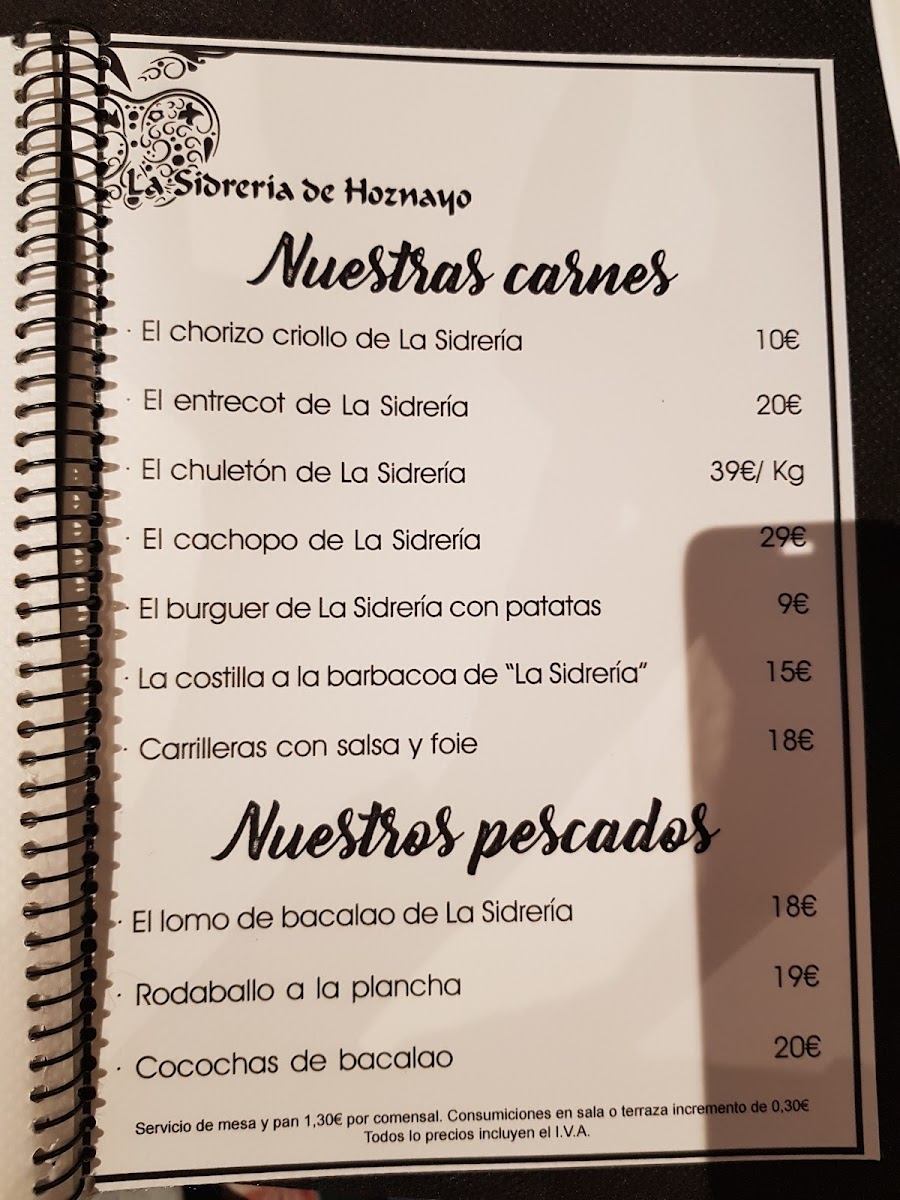 La Sidrería de Hoznayo
Nuestras carnes
· El chorizo criollo de La Sidrería 10€
· El entrecot de La Sidrería 20€
· El chuletón de La Sidrería 39€/ Kg
· El cachopo de La Sidrería 29€
· El burguer de La Sidrería con patatas 9€
· La costilla a la barbacoa de “La Sidrería” 15€
· Carrilleras con salsa y foie 18€
Nuestros pescados
· El lomo de bacalao de La Sidrería 18€
· Rodaballo a la plancha 19€
· Cocochas de bacalao 20€
Servicio de mesa y pan 1,30€ por comensal. Consumiciones en sala o terraza incremento de 0,30€
Todos lo precios incluyen el I.V.A.